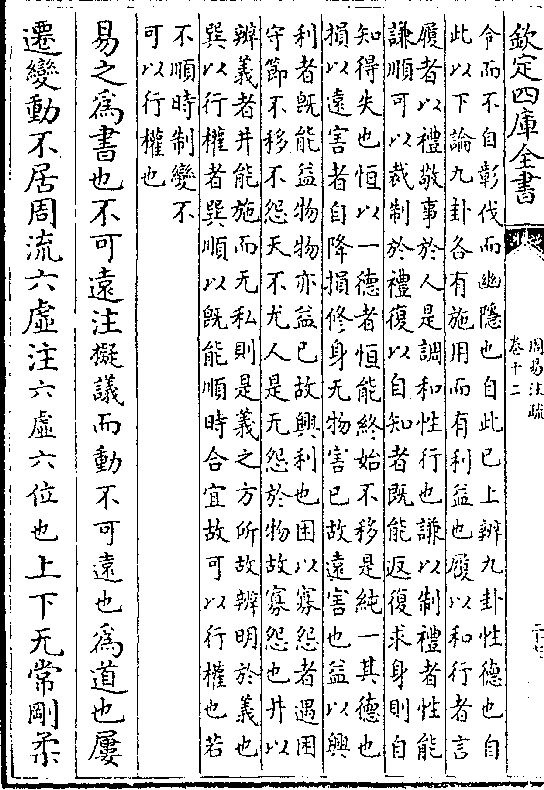 欽定四庫全書
周易注疏
卷十二
令而不自彰伐而幽隱也自此已上辨九卦性德也自
此以下論九卦各有施用而有利益也履以和行者言
履者以禮敬事於人是調和性行也謙以制禮者性能
謙順可以裁制於禮復以自知者既能返復求身則自
知得失也恒以一德者恒能終始不移是純一其德也
損以遠害者自降損修身无物害已故遠害也益以興
利者既能益物物亦益已故興利也困以寡怨者遇困
守節不移不怨天不尤人是无怨於物故寡怨也井以
辨義者井能施而无私則是義之方所故辨明於義也
巽以行權者巽順以既能順時合宜故可以行權也若
不順時制變不
可以行權也
易之為書也不可遠注擬議而動不可遠也為道也屢
遷變動不居周流六虛注六虛六位也上下无常剛柔